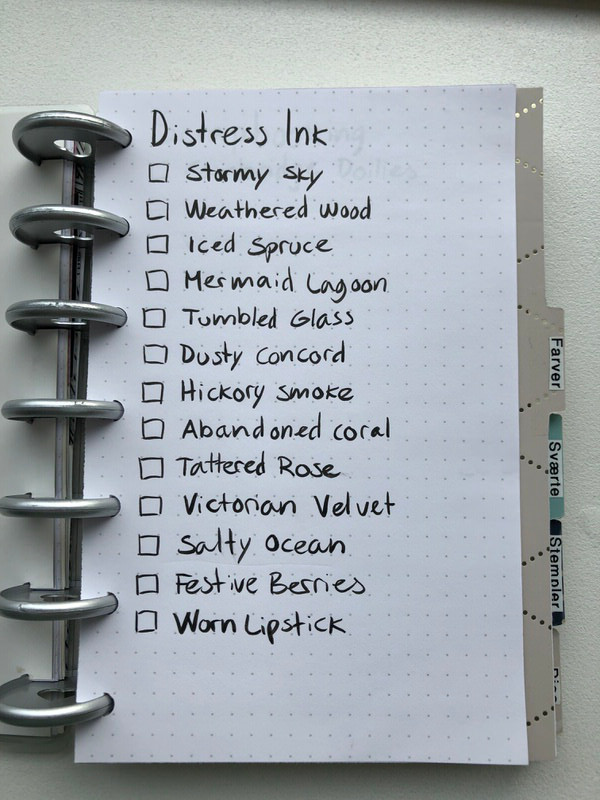 Distress Ink
Stormy Sky
Weathered Wood
Iced Spruce
Mermaid Lagoon
Tumbled Glass
Dusty Concord
Hickory Smoke
Abandoned coral
Tattered Rose
Victorian Velvet
Salty Ocean
Festive Berries
Worn Lipstick
Farver
Sværte
Stempler